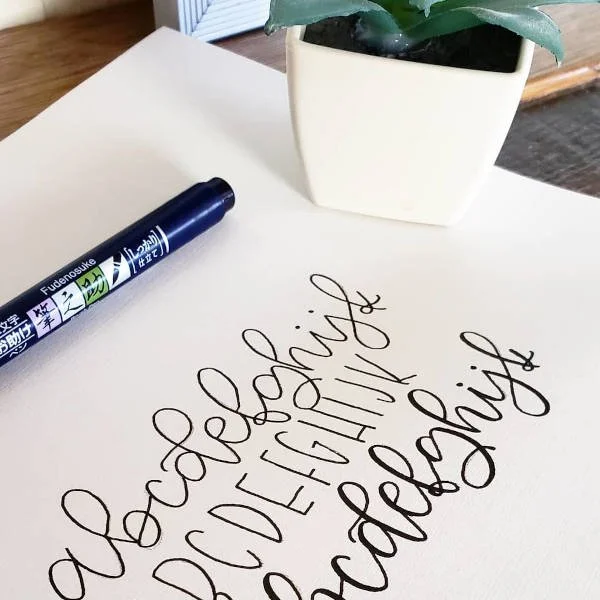 Fudenosuke
筆之助
しっかり
仕立て
文字
お助け
ペン
abcdefghijk
BCDEFGHIJK
bcdefghijk